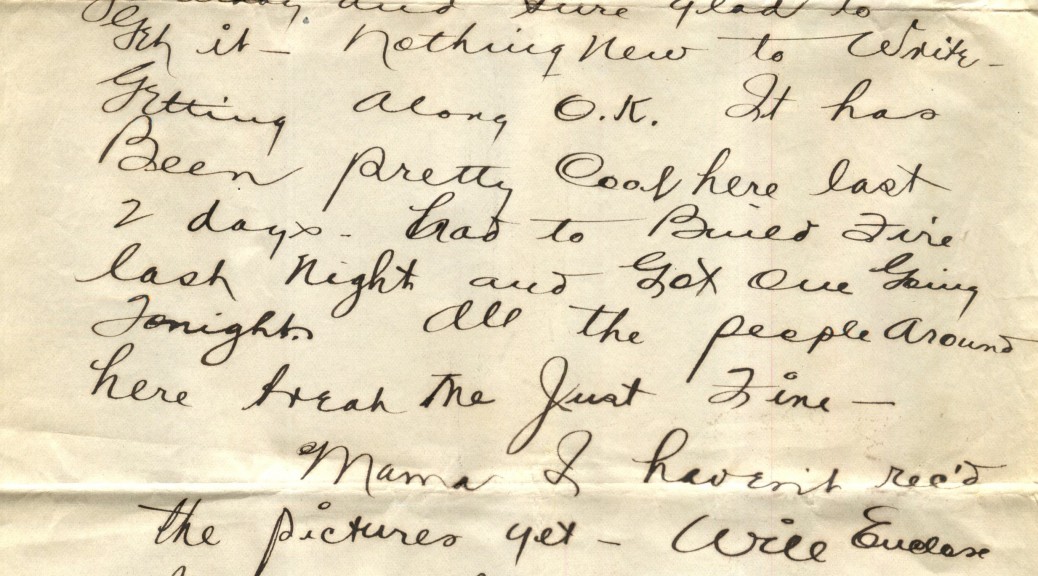 and sure glad to
Get it - Nothing New to Write -
Getting along O.K. It has
Been pretty Cool here last
2 days - had to Build Fire
last Night and Got One Going
Tonight. All the people Around
here treat Me Just Fine -
Mama I haven't rec'd
the pictures yet - Will Enclose